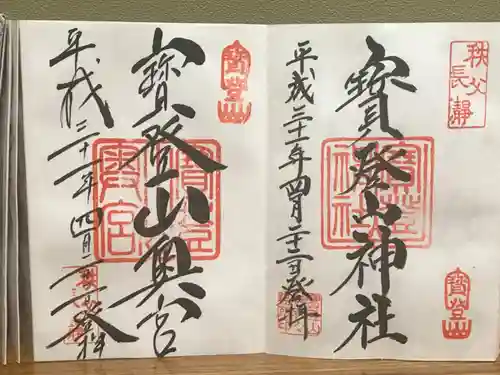 秩父
長瀞
寳登山神社
寳登山
平成三十一年四月二十二日登拝
寳登山
寳登山奥宮
平成三十一年四月二十二日登拝